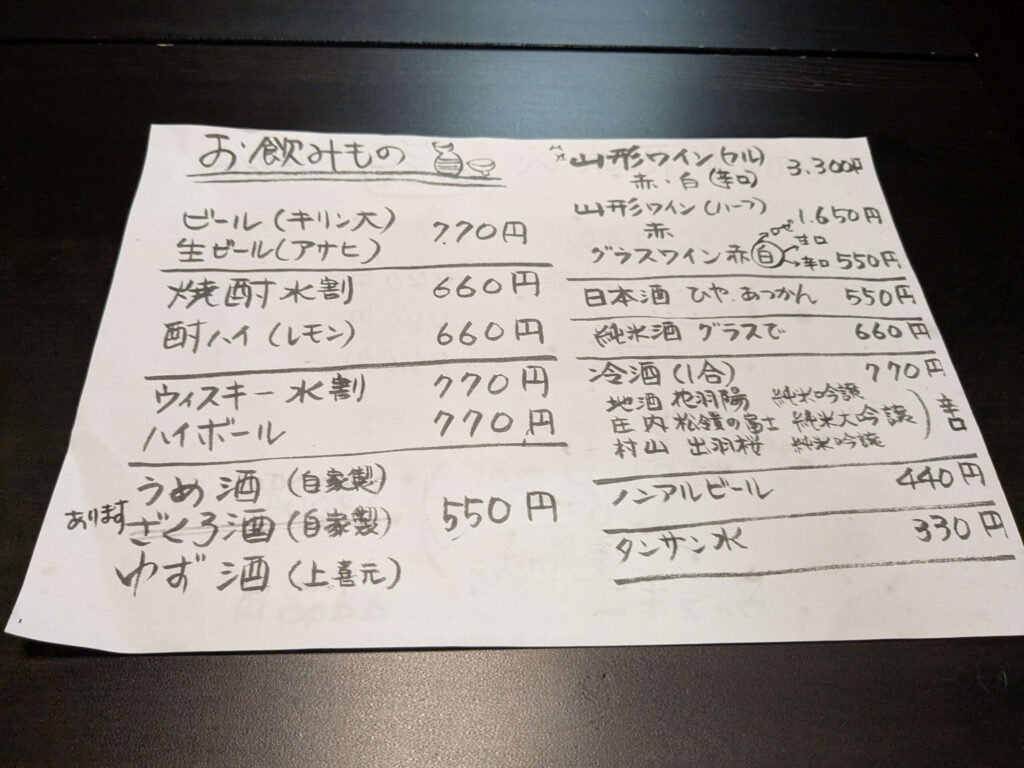 お飲みもの
ビール(キリン大)
生ビール(アサヒ) 770円
焼酎水割 660円
酎ハイ(レモン) 660円
ウィスキー水割 770円
ハイボール 770円
うめ酒(自家製)
あります ざくろ酒(自家製) 550円
ゆず酒(上喜元)
山形ワイン(フル) 3.300円
赤・白(辛口)
山形ワイン(ハーフ) 1.650円
赤 ロゼ
甘口
グラスワイン 赤 白 辛口 550円
日本酒 ひや、あつかん 550円
純米酒 グラスで 660円
冷酒(1合) 770円
地酒 花羽陽 純米吟醸
庄内 松嶺の富士 純米大吟醸 辛口
村山 出羽桜 純米吟醸
ノンアルビール 440円
タンサン水 330円